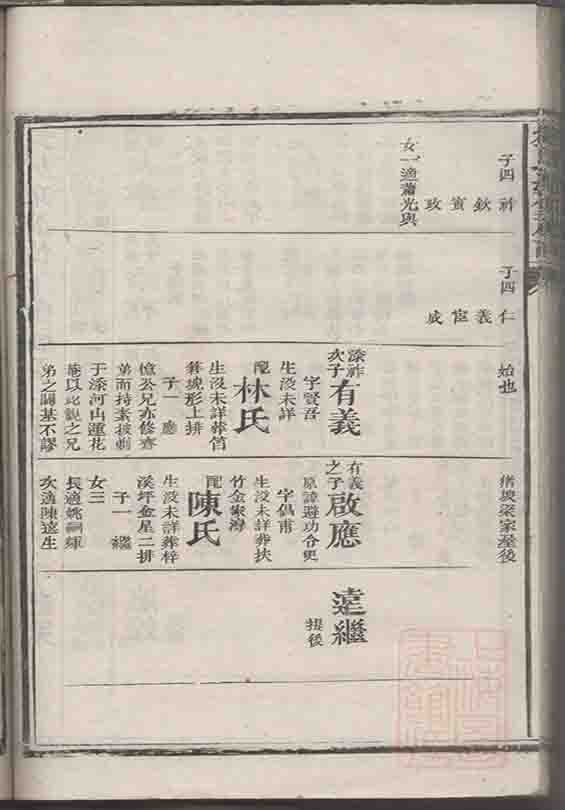 子四 祚
欽
賓
政
女一適蕭光與
子四 仁
義
宦
咸
始也
梁家屋後
添祚次子
有義
字賢吾
生没未詳
配
林氏
生没未詳葬筲
箕塊形上排
子一 應
憶公兄亦修齋
弟而持素披剃
于漆河山蓮花
菴以此觀之兄
弟之闢基不謬
有義之子
啟應
原諱避功令更
字倡甫
生没未詳葬扶
竹金
配
陳氏
生没未詳葬梓
溪坪金星二排
子一 繼
女三
長適姚
次適陳遠生
遠繼
提後